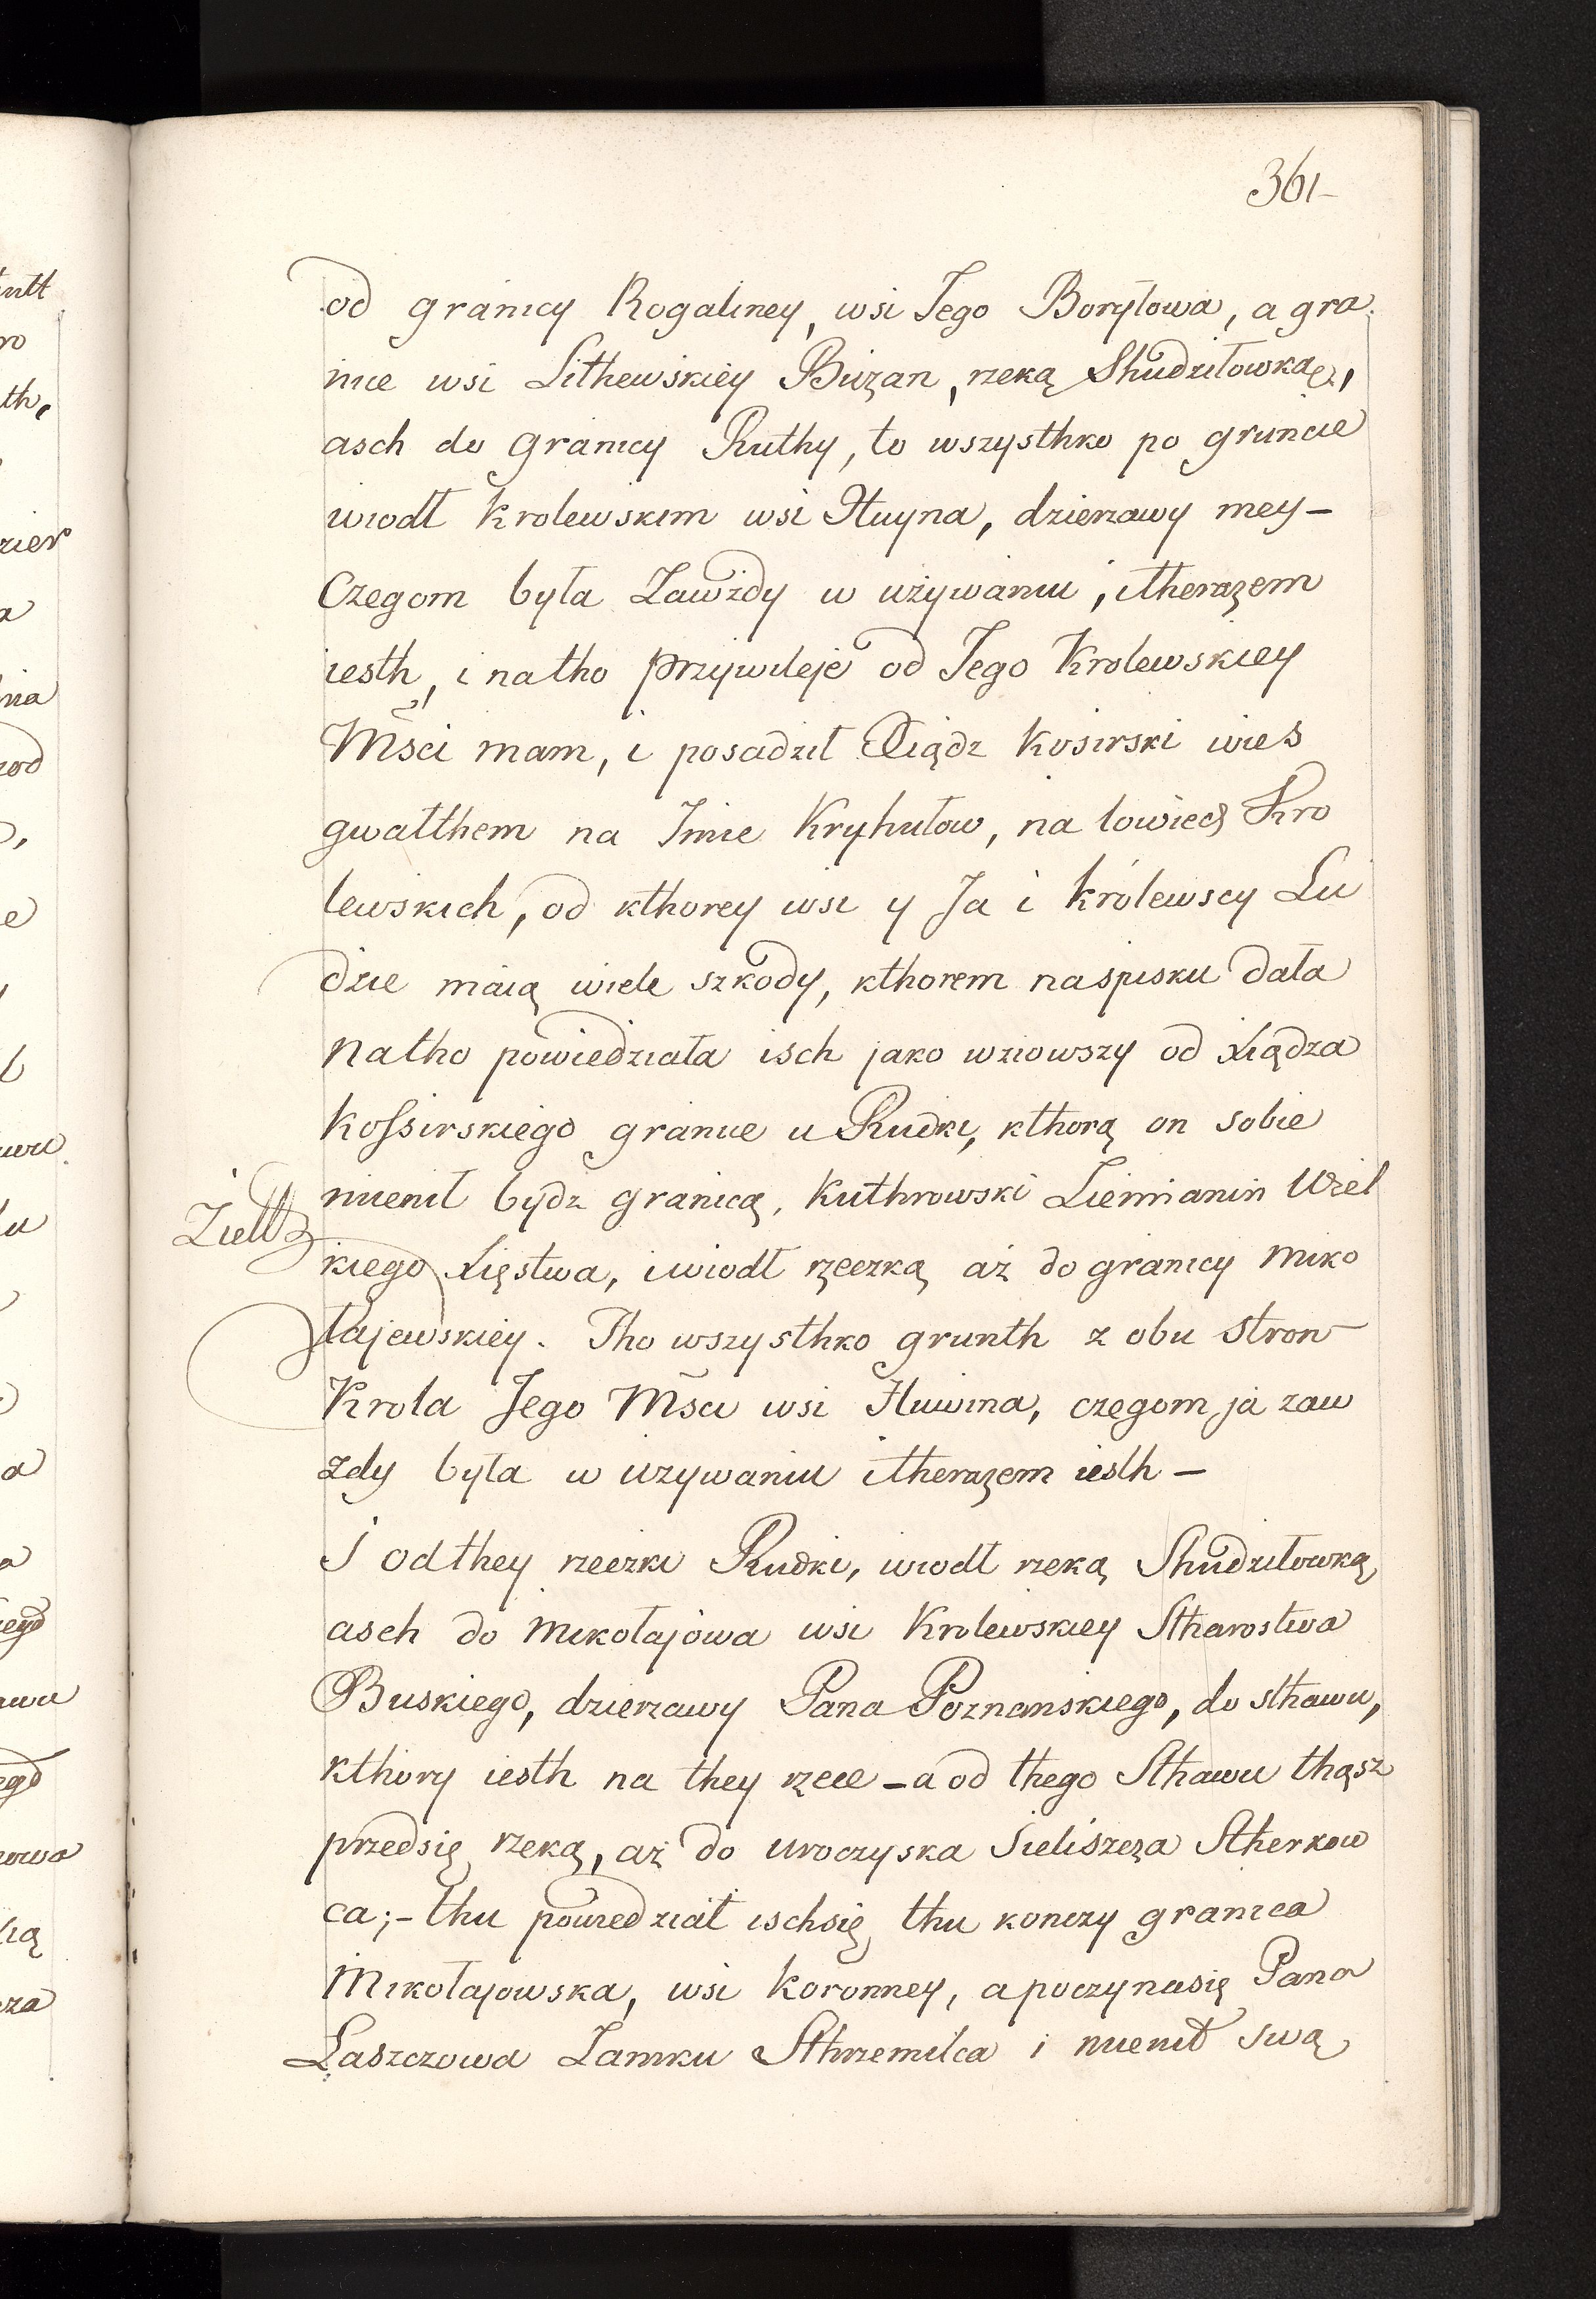 361
od granicy Rogaliney, wsi Jego Borylowa, a gra
nice wsi Lithewskiey Buzan, rzeką Shudziłowką,
asch do Granicy Ruthy, to wszysthko po gruncie
wiodł Krolewskim wsi Huyna, dzierzawy mey -
Czegom była Zawżdy w używaniu, itherazem
iesth, i natho przywileje od Jego Krolewskiey
Mści mam, i posadził Xiądz Kosirski wies
gwałthem na Imie Kryhułow, na lowiech Kro
lewskich, od kthorey wsi y Ja i królewscy Lu
dzie maią wiele szkody, kthorem naspisku dała
natho powiedziała isch jako wziowszy od Xiądza
Kossirskiego granice u Rudki, kthorą on sobie
mienił bydz granicą, Kuthrowski Ziemianin Wiel
kiego Xięstwa, iwiodł rzeczką aż do granicy Miko
łajewskiey. Tho wszysthko grunth z obu stron
Krola Jego Mści wsi Huwina, czegom ja zaw
zdy była w uzywaniu itherazem iesth -
I odthey rzeczki Rudki, wiodł rzeką Shudziłowką
asch do Mikołajowa wsi Krolewskiey Stharostwa
Buskiego, dzierzawy Pana Poznanskiego, do sthawu,
kthory iesth na they rzece - a od thego Sthawu thąsz
przedsię rzeką, aż do uroczyska Sieliszcza Stherkow
ca; - thu powiedział ischsię thu konczy granica
Mikołajowska, wsi Koronney, apoczynasię Pana
Laszczowa Zamku Sthrzemilca i mienił swą